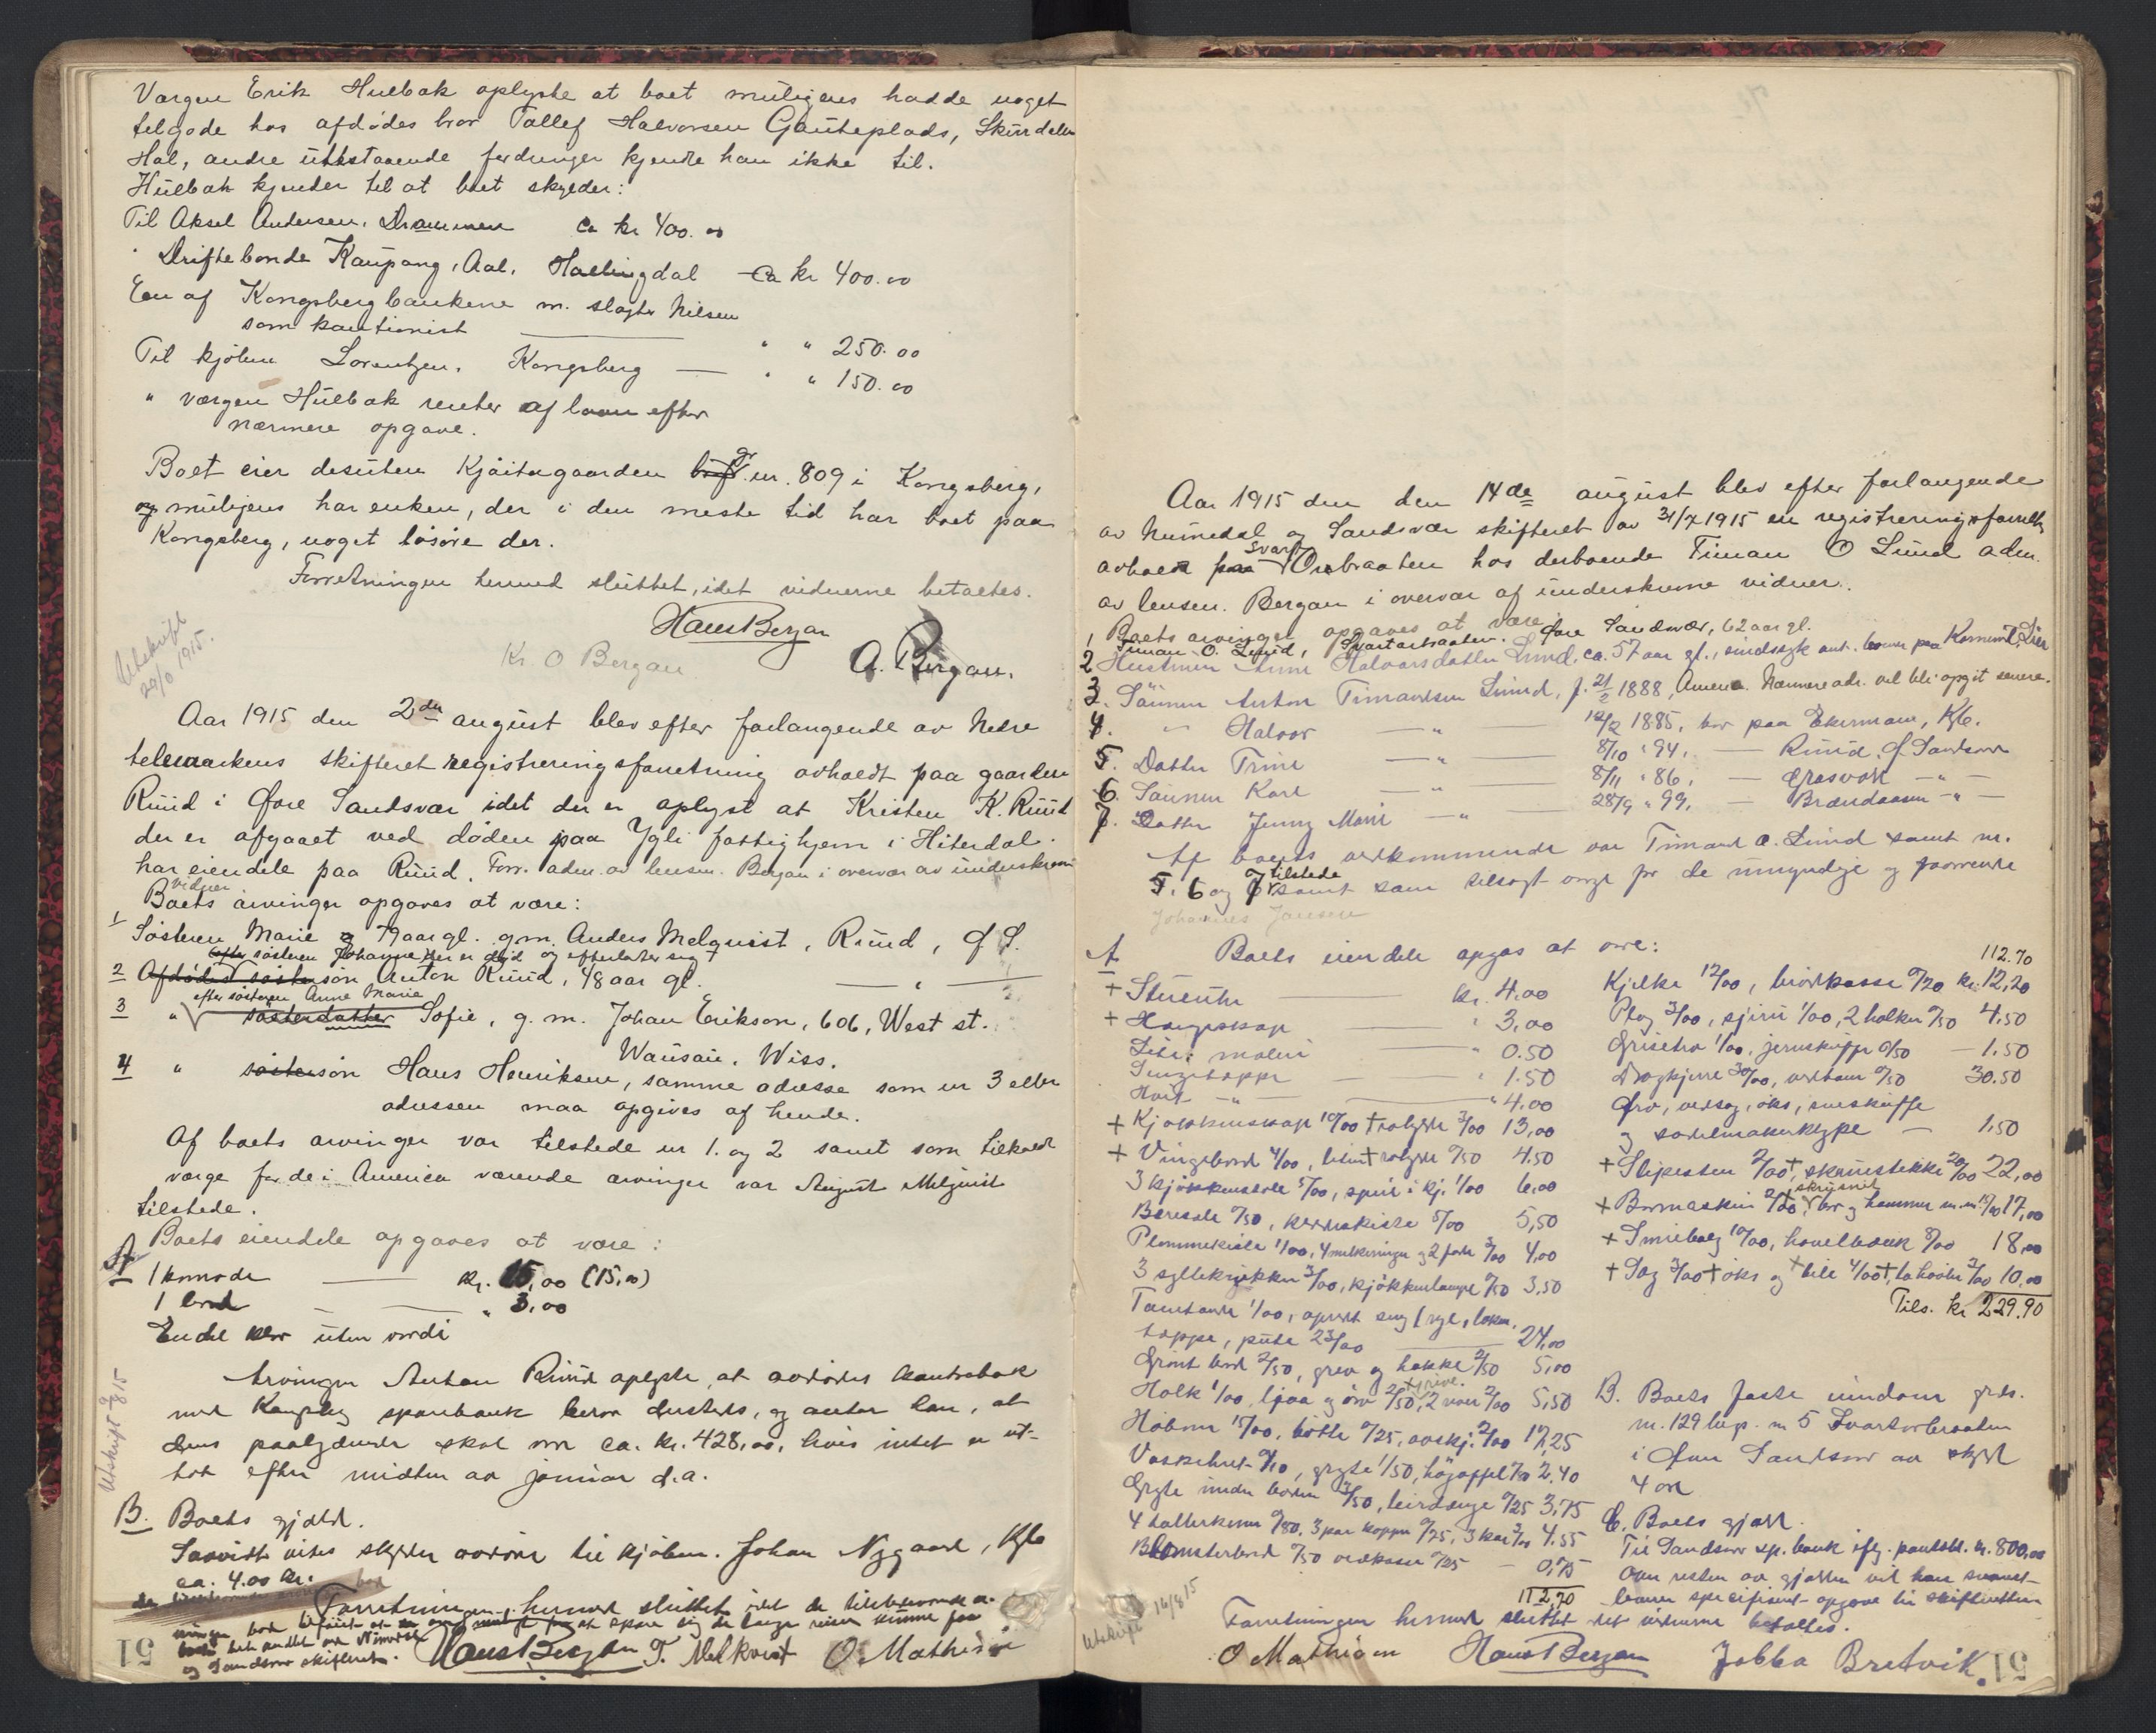 Værgen Erik Hulbak oplyste at boet muligens hadde noget
tilgode hos afdødes bror Tollef Halvorsen Gauteplads, Skurdalen
Hol, andre utestaaende fordringer kjendte han ikke til.
Hulbak kjender til at boet skylder:
Til Aksel Andersen, Drammen ca kr 400.00
" Driftebonde Kaupang, Aal, Hallingdal ca kr 400.00
Een af Kongsbergbankene m. slagter Nilsen
som kautionist " " 250.00
Til kjøbm Lorentzen, Kongsberg — " " 150.00
" værgen Hulbak renter af laan efter
nærmere opgave.
Boet eier desuten Kjøitagaarden gr nr. 809 i Kongsberg,
og muligens har enken, der i den meste tid har boet paa
Kongsberg, noget løsøre der.
Forretningen hermed sluttet, idet vidnerne betaltes.
Hans Bergan
Kr. O Bergan A. Bergan.
Utskrift
1915.
Aar 1915 den 2den august blev efter forlangende av Nedre
telemarkens skifteret registreringsforretning avholdt paa gaarden
Ruud i Øvre Sandsvær idet der er oplyst at Kristen K. Ruud
der er afgaaet ved døden paa Ygli fattighjem i Hiterdal
har eiendele paa Ruud. Forr. adm. av lensm. Bergan i overvær av underskrevne
vidner
Boets arvinger opgaves at være:
1 Søsteren Marie 79 aar gl. g.m. Anders Melquist, Ruud, Ø. S.
efter søsteren Johanne der er død og efterlater sig
2 Afdødes søstersøn Anton Ruud, 48 aar gl. — " —
efter søsteren Anne Marie
3 " søsterdatter Sofie, g. m. Johan Erikson, 606, West st.
Wausau. Wiss.
4 " søstersøn Hans Henriksen, samme adresse som nr 3 eller
adressen maa opgives af hende.
Af boets arvinger var tilstede nr 1. og 2 samt som tilkaldt
værge for de i America værende arvinger var August Melquist
tilstede.
Boets eiendele opgaves at være:
A 1 komode — kr. 15,00 (15,00)
1 bord — " 3.00
Endel klær uten værdi
Arvingen Anton Ruud oplyste, at avdødes kontrabok
med Kongsberg sparebank beror dersteds, og antar han, at
dens paalydende skal være ca. kr. 428,00, hvis intet er ut-
tat efter midten av januar d.a.
Utskrift 9/8 15
B. Boets gjæld.
Saavidt vites skylder avdøde til kjøbm. Johan Nygaard, Kgb
ca. 4.00 kr.
Forretningen hermed sluttet idet de tilstedeværende ar-
og Sandsvær skifteret.
Hans Bergan T. Melkvist O. Mathisøn
51
Aar 1915 den den 14de august blev efter forlangende
av Numedal og Sandsvær skifteret av 31/7 1915 en registreringsforretn
Svart
avholdt paa Orebraaten hos derboende Timan O Lund adm.
av lensm. Bergan i overvær af underskrevne vidner.
Boets arvinger opgaves at være
1 Timan O. Lund, Svartorbraaten. Øvre Sandsvær, 62 aar gl.
2 Hustruen Anne Halvorsdatter Lund, ca. 57 aar gl., sindssyk ant. boende paa Komuni, Lier
3. Sønnen Anton Timandsen Lund, f. 21/2 1888, America. Nærmere adr. vil bli opgit senere.
4. " Halvor — " — 12/2 1885, bor paa Ekermoen, Kgb.
5. Datter Trine — " — 8/10 " 94, — Ruud, Ø. Sandsvær
6. Sønnen Karl — " — 8/11 " 86, — Græsvok — " —
7. Datter Jenny Marie — " — 28/9 " 99, — Brændaasen — " —
Af boets vedkommende var Timand O. Lund samt nr.
tilstede
5. 6 og 7 samt som tilsagt verge for de umyndige og fraværende
Johannes Jansen
A Boets eiendele opgas at være:
+ Stueuhr — kr. 4.00
+ Hængeskap — " 3,00
Lite, maleri — " 0.50
Sengeteppe — " 1.50
Hvit — " — " 4.00
+ Kjøkkenskap 10/00 + rokgrei 3/00 13,00
+ Vingebord 4/00, liten + rokgrei 0/50 4.50
3 kjøkkenstole 5/00, speil i kj. 1/00 6,00
Bærestol 0/50, klædekiste 5/00 5,50
Blommekiste 1/00, 4 melkeringer og 2 fade 3/00 4,00
3 sylte krukker 3/00, kjøkkenlampe 0/50 3.50
Tomtønde 1/00, opredt seng (ryе, laken,
teppe, pute 23/00 — 24,00
Grønt bord 2/50, grev og hakke 2/50 5,00
+ grive.
Holk 1/00, ljaa og orv 2/50, 2 river 2/00 5,50
Høbom 15/00, bøtte 0/25, avskj. 2/00 17,25
Vaskehus 0/10, gryte 1/50, høgaffel 0/80 2.40
Gryte under boden 3/50, leirdunge 0/25 3,75
4 tallerkener 0/80, 3 par kopper 0/75, 3 kar 3/00 4.55
Blomsterbord 0/50 vedkasse 0/25 — 0,75
112,70
112.70
Kjelke 12/00, bordkasse 0/20 kr. 12,20
Plog 3/00, spiru 1/00, 2 holker 0/50 4.50
Grisetro 1/00, jernskuffe 0/50 — 1.50
Dragkjerre 30/00, vedbom 0/50 30.50
Orv, vedsag, øks, sneskuffe
og sadelmakerklype — 1,50
+ Slipesten 2/00 +, skruestikke 20/00 22,00
+ skrusnit
+ Bormaskin 2/00, bor og hammer m.m. 15/00 17,00
+ Smiebælg 10/00, høvelbænk 8/00 18,00
+ Sag 3/00 + øks og + bile 4/00 +, to høvler 3/00 10,00
Tils. kr 229.90
B. Boets faste eiendom grds.
nr. 129 brgs. nr 5 Svartorbraaten
i Øvre Sandsvær av skyld
4 øre
C. Boets gjæld.
Til Sandsvær sp. bank iflg. pantobl. kr. 800,00
Over resten av gjælden vil han snarest
levere specificert opgave til skifteretten
Utskrift 16/8 15
Forretningen hermed sluttet idet vidnerne betaltes.
O Mathisøn Hans Bergan Jobba Bretvik.
51